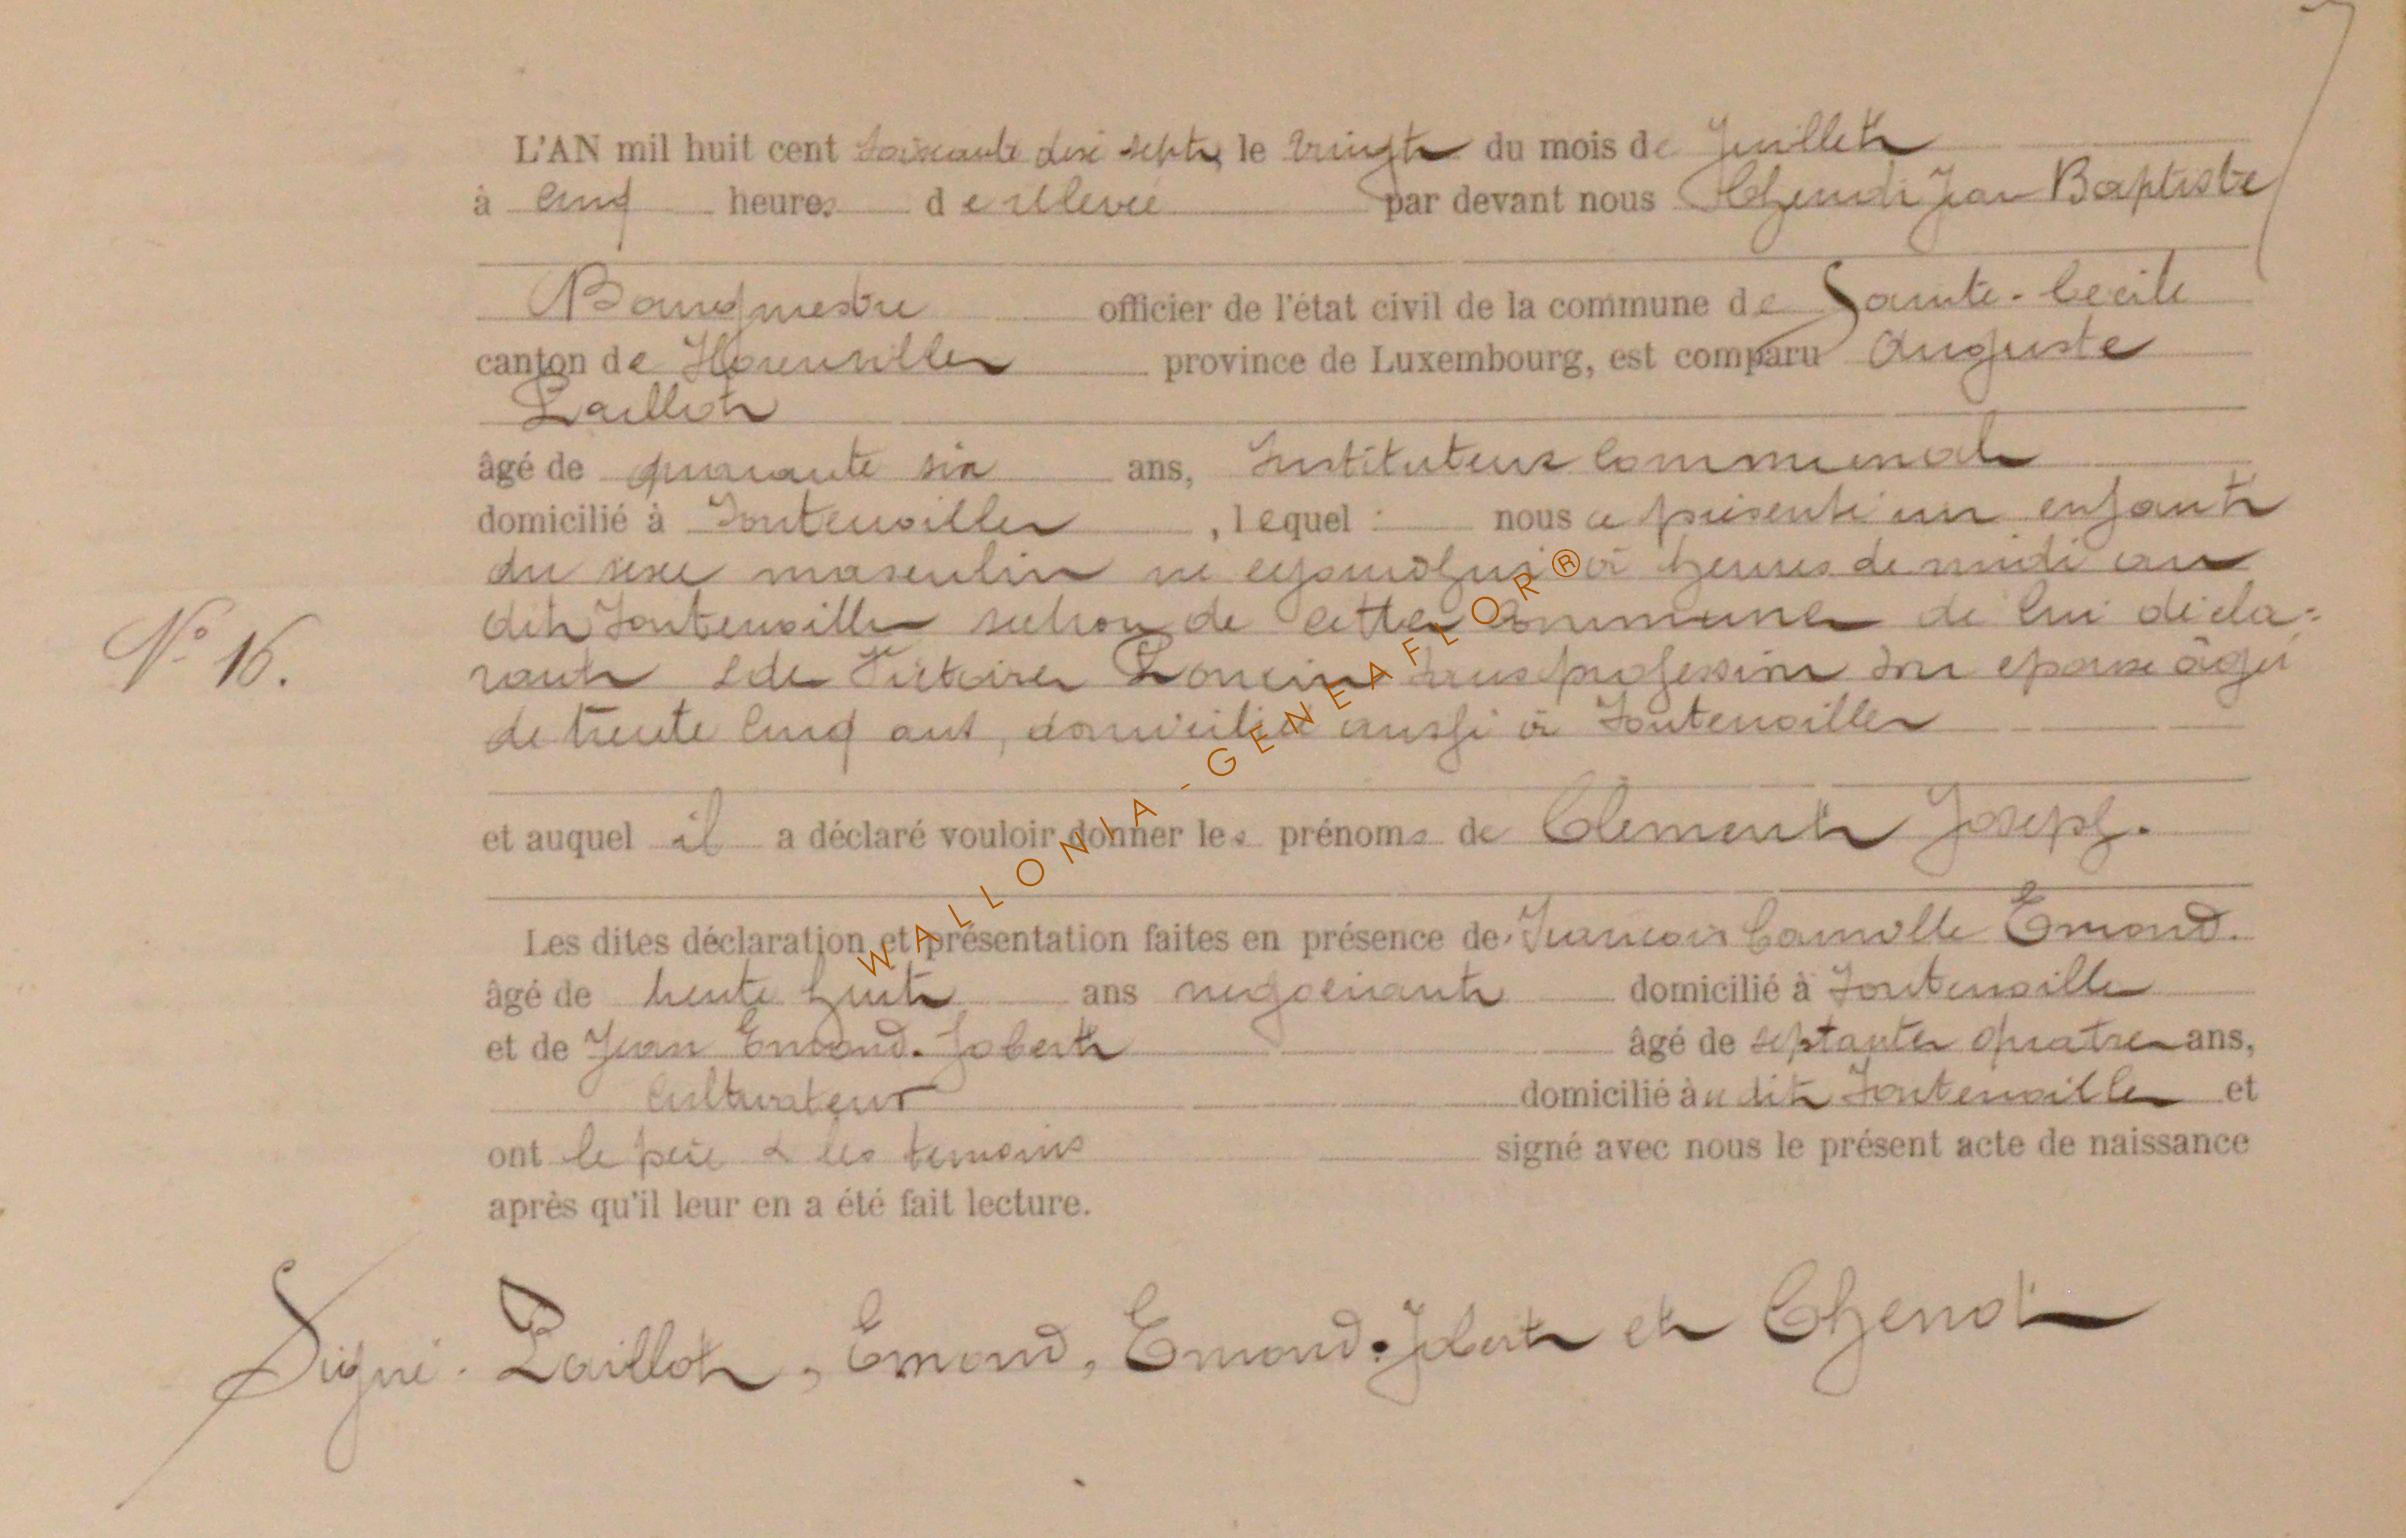 L'AN mil huit cent soixante dix sept, le vingt du mois de Juillet
à cinq heures de relevée par devant nous Chenot Jean Baptiste
Bourgmestre officier de l'état civil de la commune de Sainte-Cecile
canton de Florenville province de Luxembourg, est comparu Auguste
Laillot
âgé de quarante six ans, Instituteur Communal
domicilié à Fontenoille, lequel nous a présenté un enfant
du sexe masculin né à heures de midi au
dit Fontenoille section de cette commune de lui décla=
rant & de Victoire Poncin sans profession son epouse âgée
de trente cinq ans, domiciliée aussi à Fontenoille
et auquel il a déclaré vouloir donner les prénoms de Clément Joseph.
Les dites déclaration et présentation faites en présence de François Camille Emond.
âgé de trente huit ans negociant domicilié à Fontenoille
et de Jean Emond-Jobert âgé de septante quatre ans,
cultivateur domicilié audit Fontenoille et
ont le père & les temoins signé avec nous le présent acte de naissance
après qu'il leur en a été fait lecture.
N° 16.
Signé. Laillot, Emond, Emond-Jobert et Chenot
WALLONIA-GENEAFLOR®